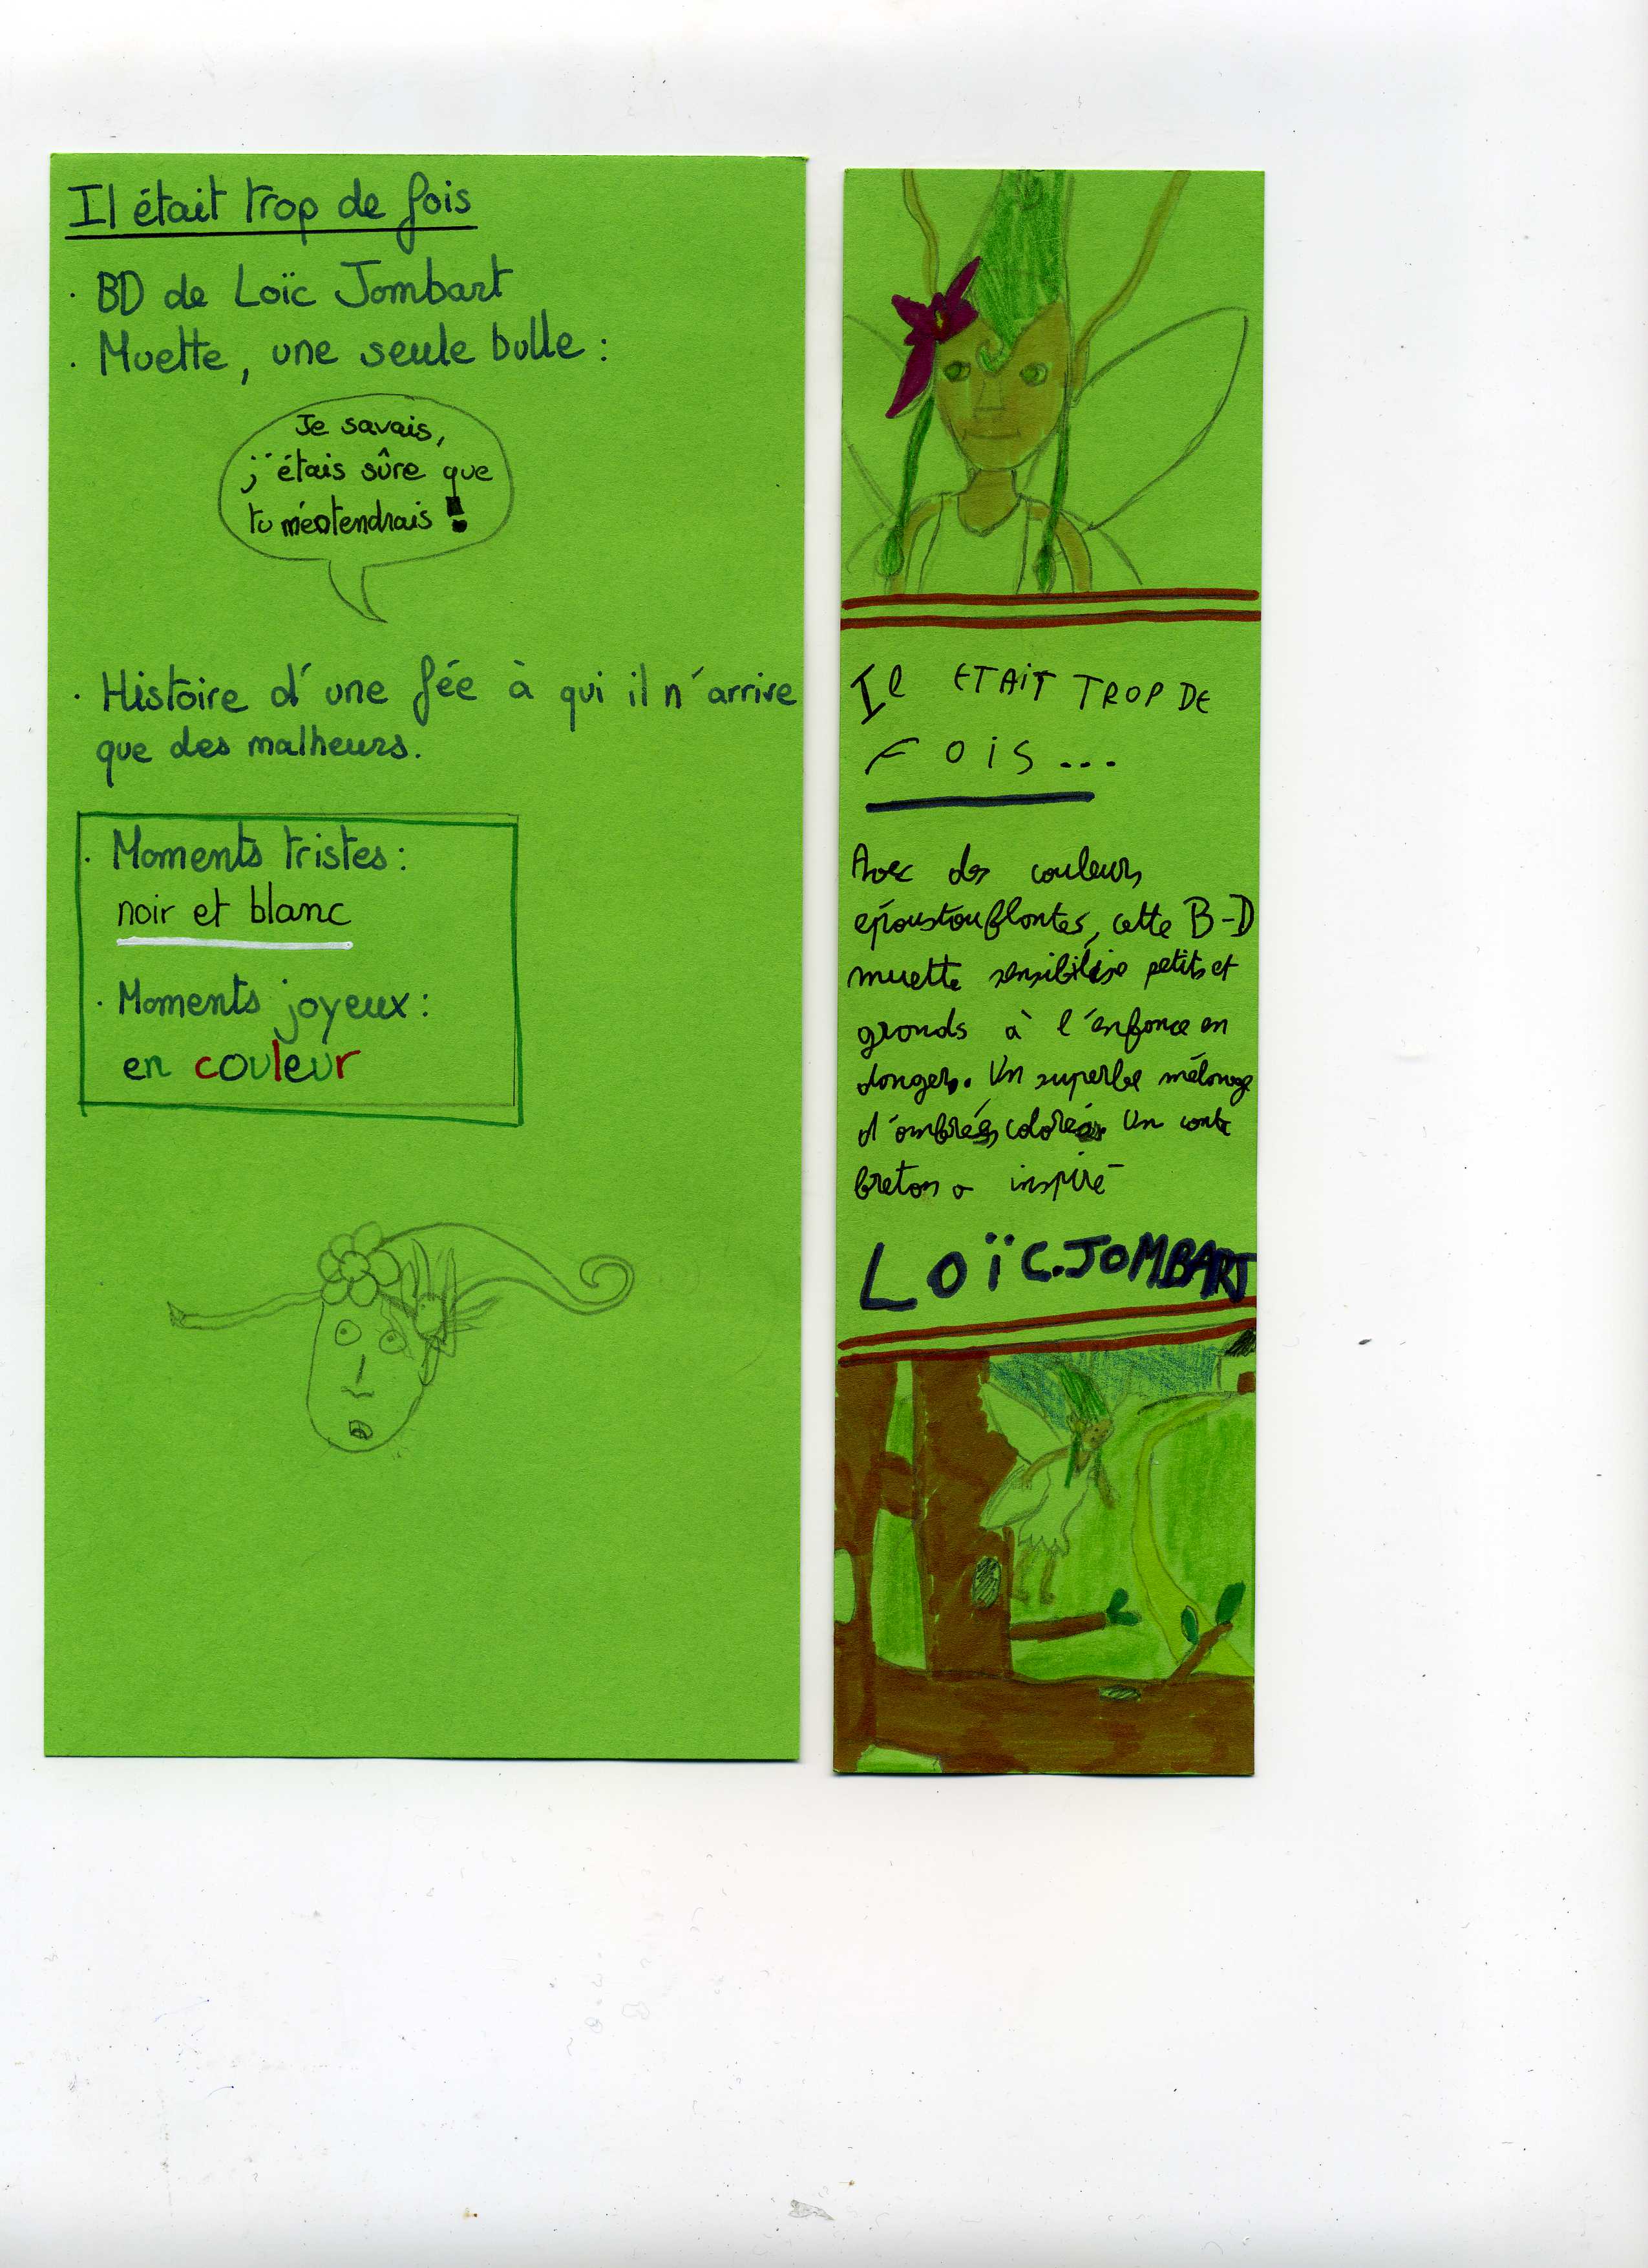 Il était trop de fois
· BD de Loïc Jombart
· Muette, une seule bulle :
Je savais,
j'étais sûre que
tu m'entendrais !
· Histoire d'une fée à qui il n'arrive
que des malheurs.
· Moments tristes :
noir et blanc
· Moments joyeux :
en couleur
Il ETAiT TROP DE
FOiS...
Avec des couleurs
époustouflantes, cette B-D
muette sensibilise petits et
grands à l'enfance en
danger. Un superbe mélange
d'ombrées colorées. Un conte
breton a inspiré
LOïC.JOMBART